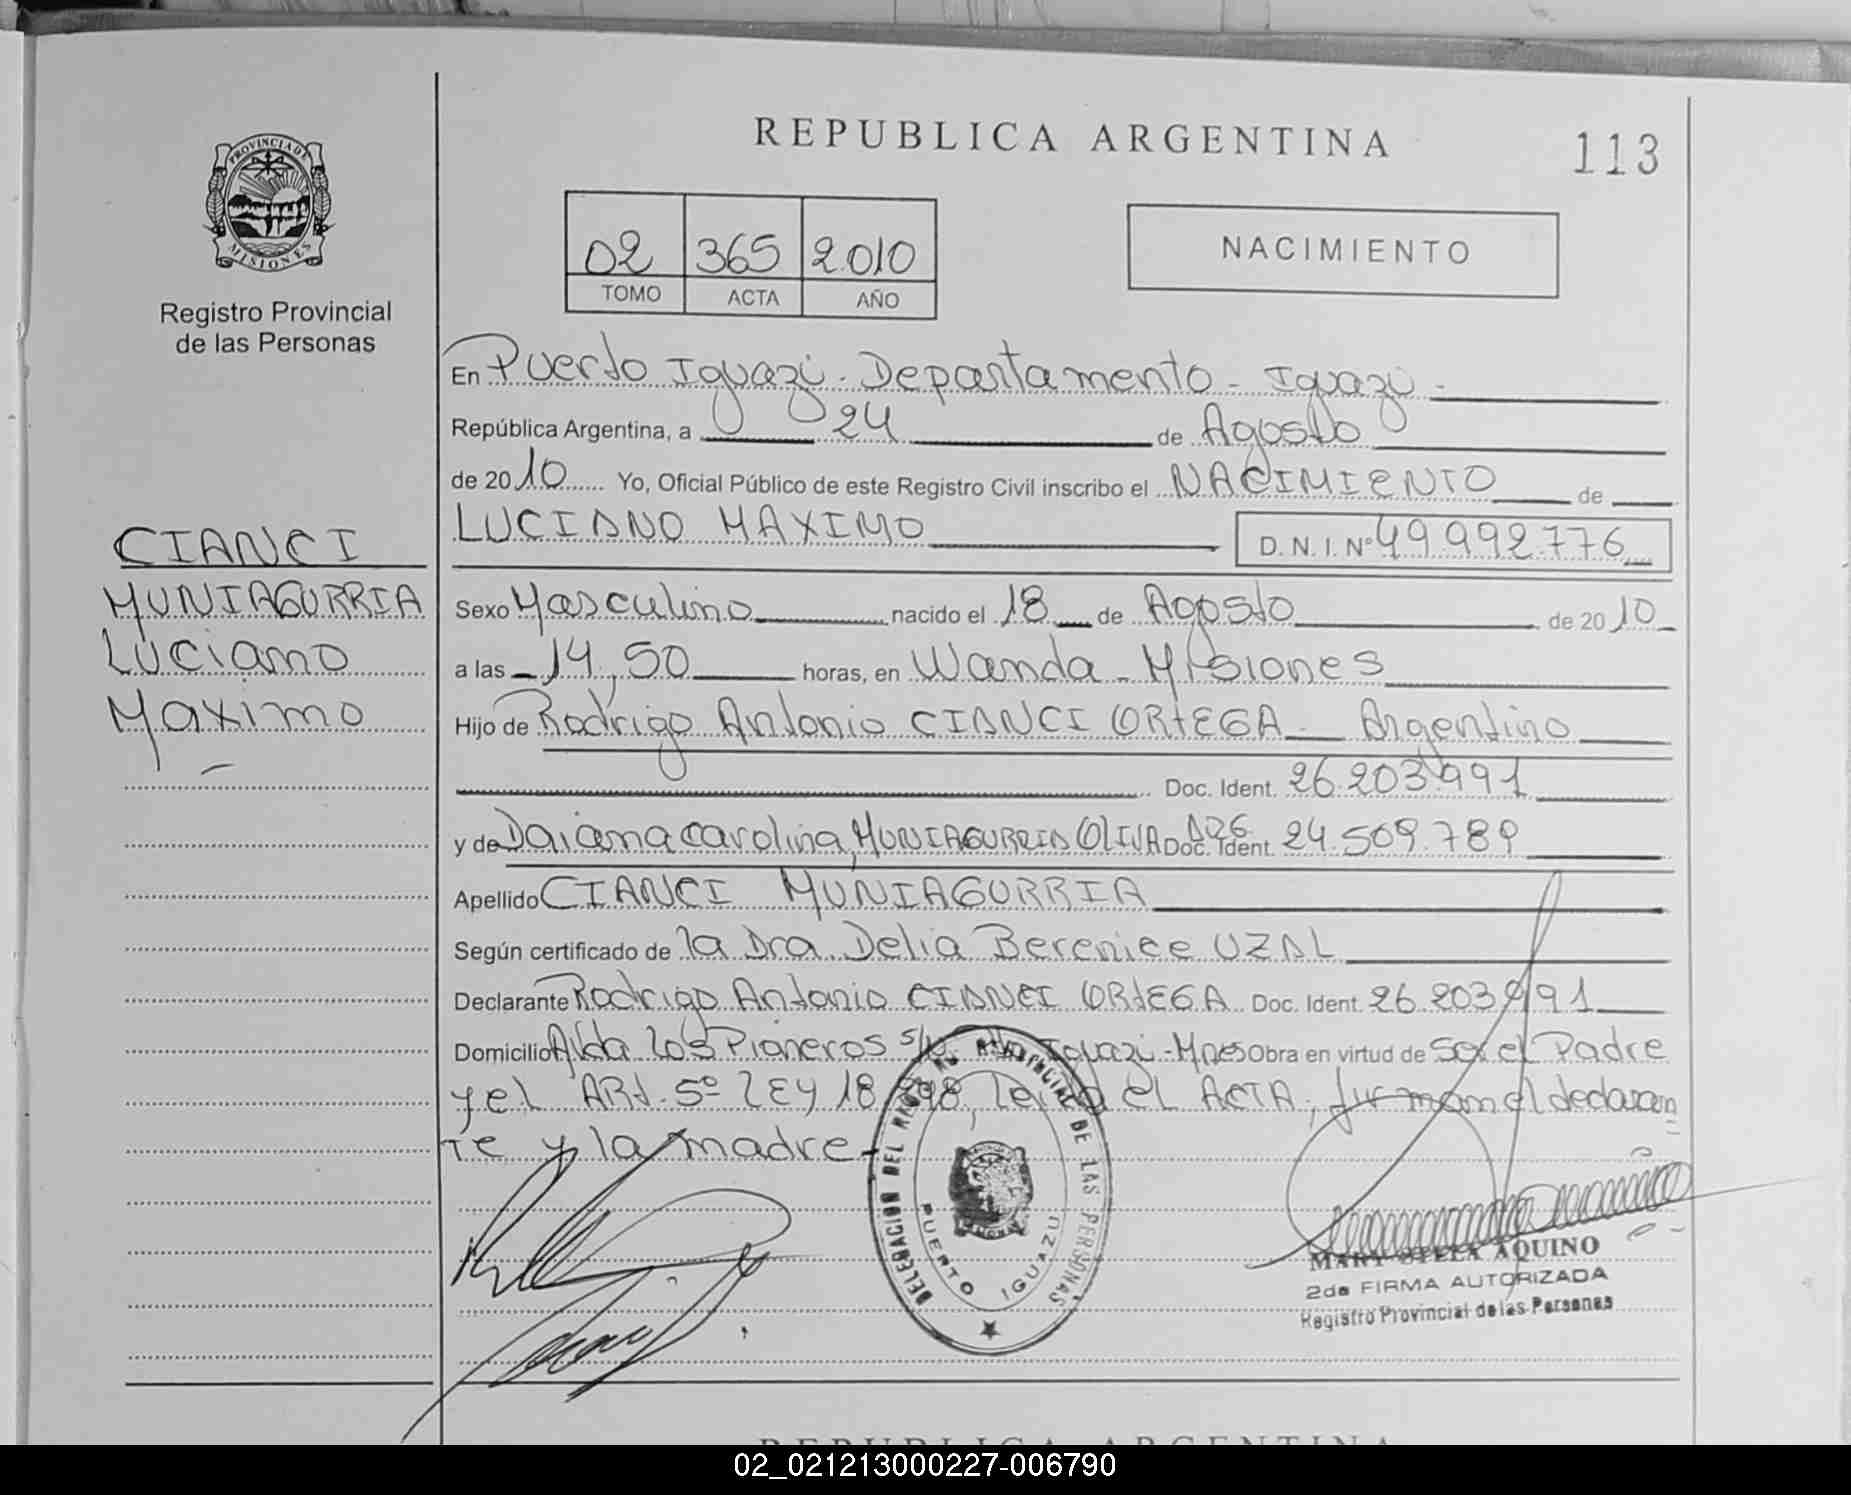 REPUBLICA ARGENTINA
113
PROVINCIA DE
MISIONES
Registro Provincial
de las Personas
02 365 2.010
TOMO ACTA AÑO
NACIMIENTO
En Puerto Iguazú. Departamento - Iguazú -
República Argentina, a 24 de Agosto
de 2010 Yo, Oficial Público de este Registro Civil inscribo el NACIMIENTO de
LUCIANO MAXIMO D. N. I. Nº 49.992.776
CIANCI
MUNIAGURRIA
Luciano
Maximo
Sexo Masculino nacido el 18 de Agosto de 2010
a las 14,50 horas, en Wanda - Misiones
Hijo de Rodrigo Antonio CIANCI ORTEGA Argentino
Doc. Ident. 26.203.991
y de Daiana Carolina, MUNIAGURRIA OLIVA Arg Doc. Ident. 24.509.789
Apellido CIANCI MUNIAGURRIA
Según certificado de la Dra. Delia Berenice UZAL
Declarante Rodrigo Antonio CIANCI ORTEGA Doc. Ident. 26.203.991
Domicilio Avda Los Pioneros s/n Iguazú - Mnes Obra en virtud de Ser el Padre
y el ARt. 5º LEY 18. leida el ACTA, firman el declaran
te y la madre -
DELEGACION DEL REGISTRO PROVINCIAL DE LAS PERSONAS
PUERTO IGUAZU
MARY STELLA AQUINO
2da FIRMA AUTORIZADA
Registro Provincial de las Personas
REPUBLICA ARGENTINA
02_021213000227-006790